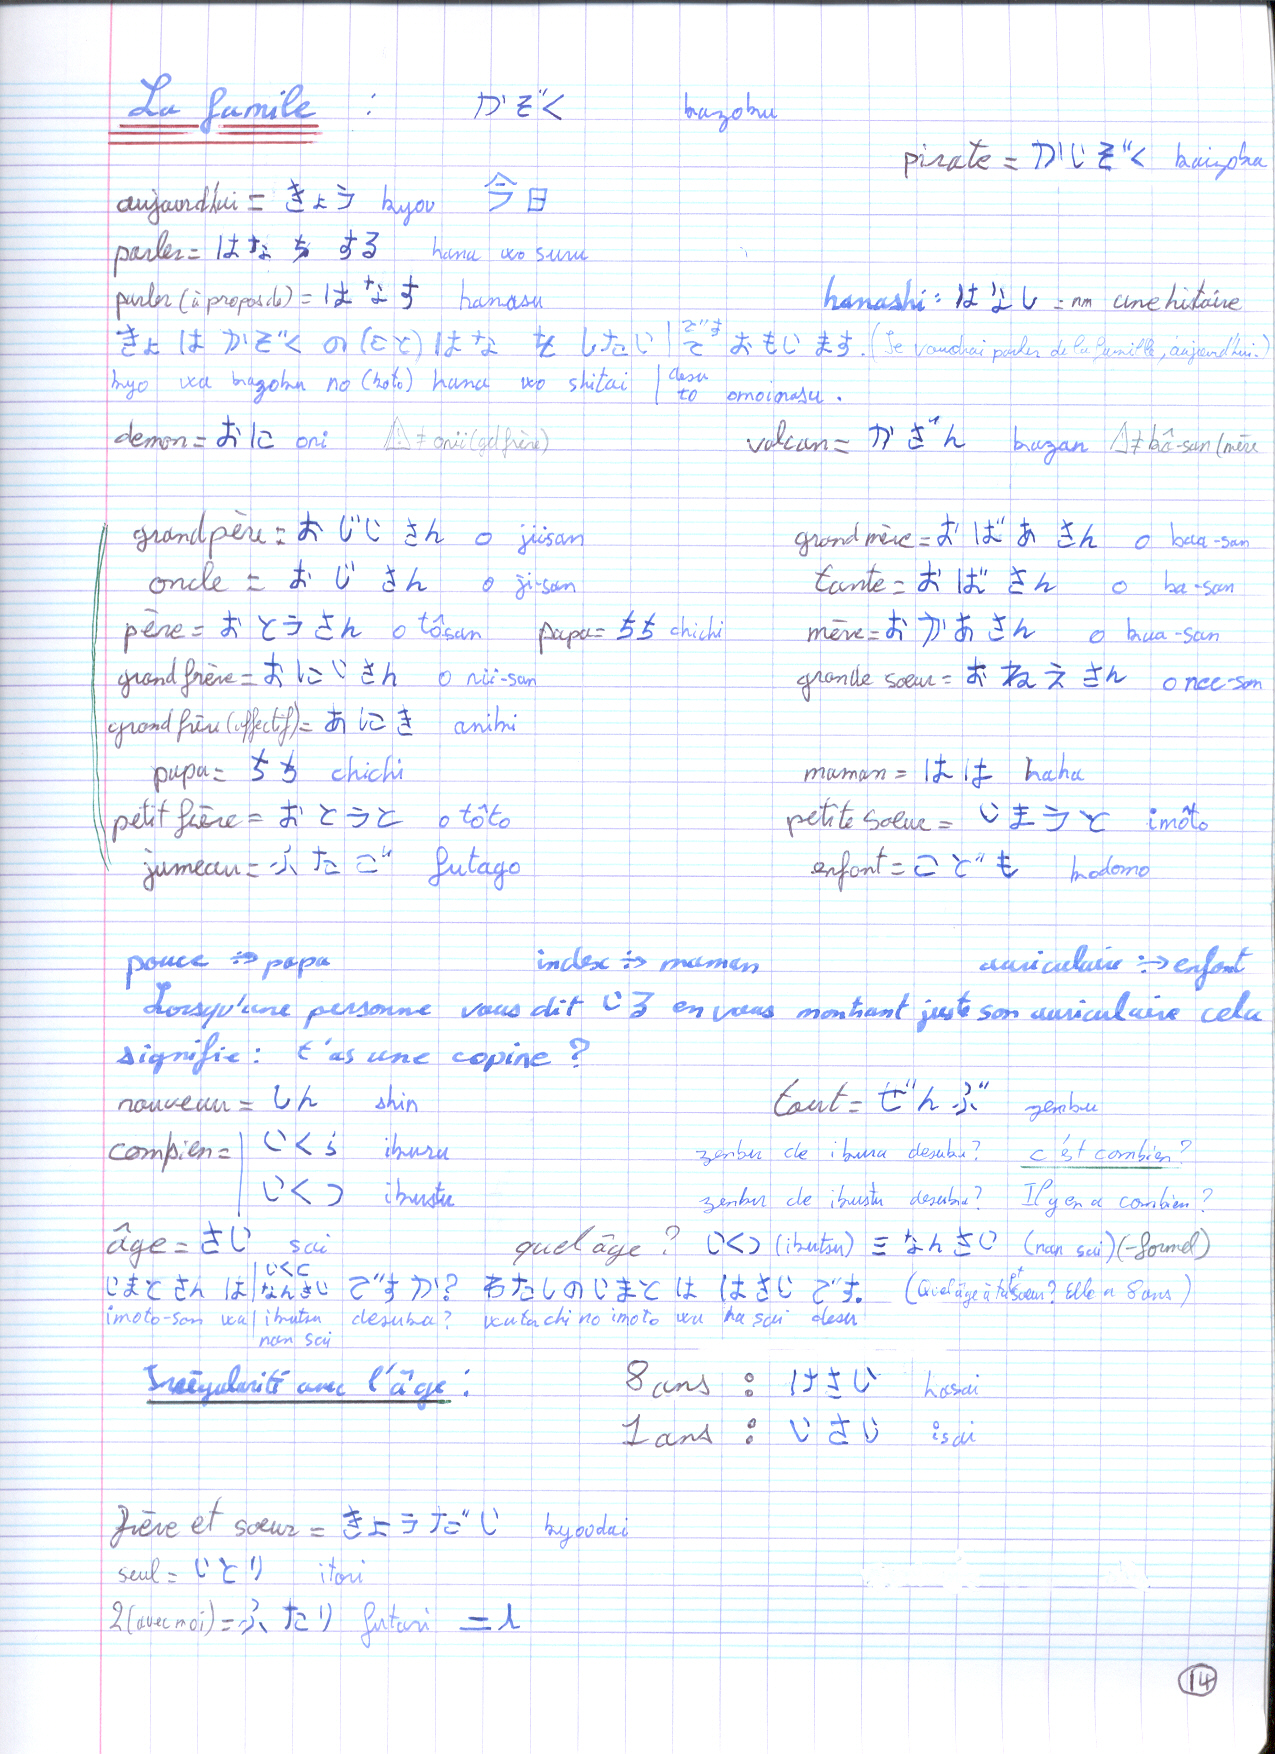 La famile : かぞく kazoku
pirate = かいぞく kaizoku
aujourd'hui = きょう kyou 今日
parler = はなちする hana wo suru
parler (à propos de) = はなす hanasu hanashi : はなし = nm une hitoire
きょはかぞくの(こと)はなをしたい|です とおもいます。(Je voudrai parler de la famille, aujourd'hui.)
kyo wa kazoku no (koto) hana wo shitai | desu to omoimasu.
demon = おに oni ⚠ ≠ onii (gd frère) volcan = かざん kazan ⚠ ≠ kâ-san (mère
grand père = おじいさん o jiisan grand mère = おばあさん o baa-san
oncle = おじさん o ji-san tante = おばさん o ba-san
père = おとうさん o tôsan papa = ちち chichi mère = おかあさん o kaa-san
grand frère = おにいさん o nii-san grande sœur = おねえさん o nee-san
grand frère (affectif) = あにき aniki
papa = ちち chichi maman = はは haha
petit frère = おとうと o tôto petite sœur = いまうと imôto
jumeau = ふたご futago enfant = こども kodomo
pouce → papa index → maman auriculaire → enfant
Lorsqu'une personne vous dit いる en vous montrant juste son auriculaire cela
signifie : t'as une copine ?
nouveau = しん shin tout = ぜんぶ zenbu
compien = | いくら ikura zenbu de ikura desuka? c'est combien ?
| いくつ ikustu zenbu de ikustu desuka? Il y en a combien ?
âge = さい sai quel âge ? いくつ (ikutsu) = なんさい (nan sai) (-formel)
いまとさんは|いくつ なんさい ですか? わたしのいまとは はさいです。 (Quel âge à ta pt sœur ? Elle a 8 ans)
imoto-san wa | ikutsu desuka? watachi no imoto wa ha sai desu
nan sai
Irrégularité avec l'âge : 8 ans : はさい hasai
1 ans : いさい isai
frère et sœur = きょうだい kyoodai
seul = いとり itori
2 (avec moi) = ふたり futari 二人
14